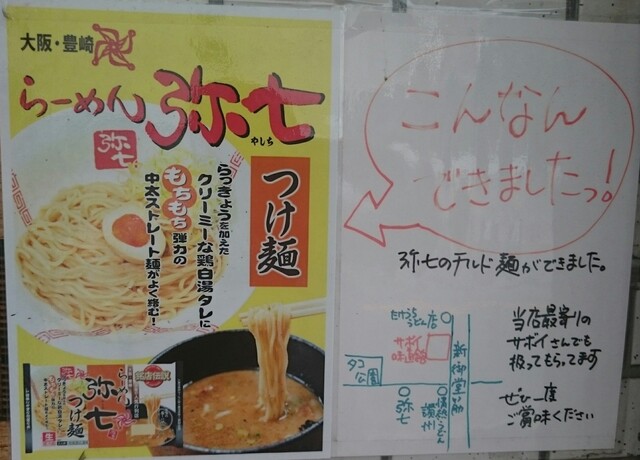 大阪・豊崎
らーめん 弥七
やしち
弥七
つけ麺
らっきょうを加えた
クリーミーな鶏白湯タレに
もちもち弾力の
中太ストレート麺がよく絡む!
らーめん
弥七
つけ麺
こんなん
できましたっ!
弥七のチルド麺ができました。
当店最寄りの
サボイさんでも
扱ってもらってます
ぜひ一度
ご賞味ください
たけうちうどん店
サボイ
味道館
新御堂筋
タコ
公園
弥七
情熱うどん
讃州